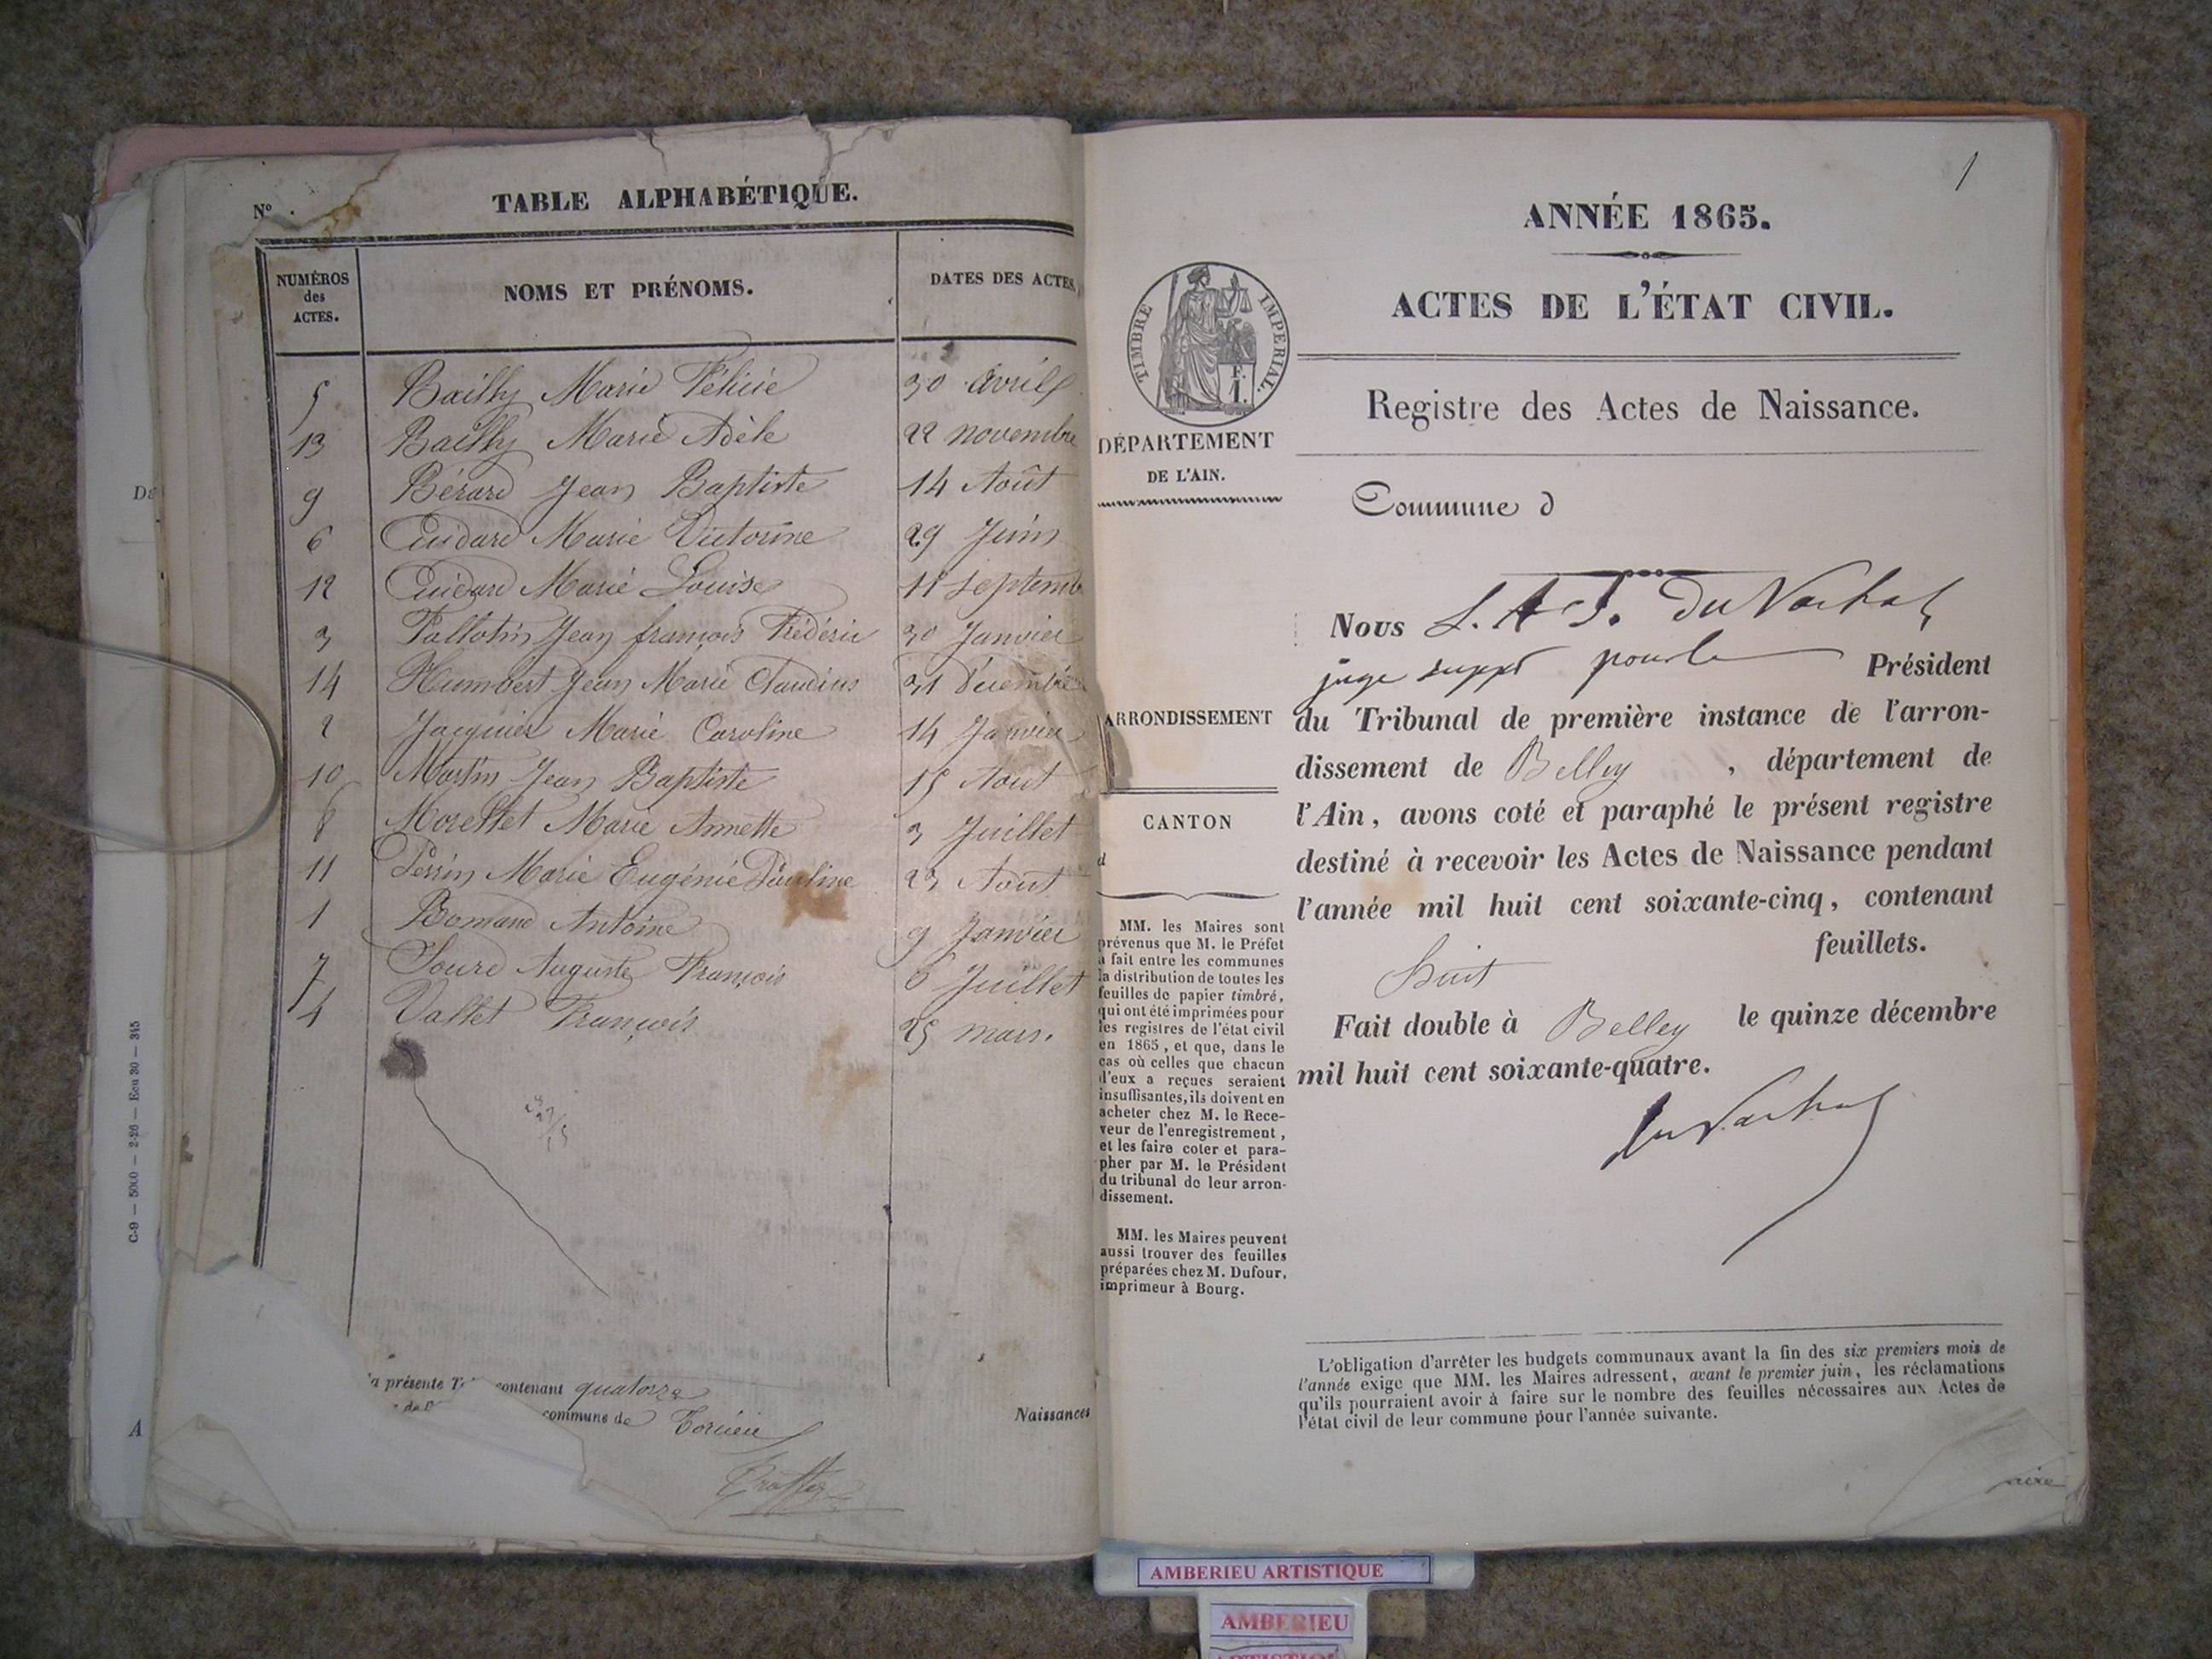 Nº
TABLE ALPHABÉTIQUE.
NUMÉROS
des
ACTES.
NOMS ET PRÉNOMS.
DATES DES ACTES
5 Bailly Marie Félicie 30 avril
13 Bailly Marie Adèle 22 novembre
9 Bérard Jean Baptiste 14 Août
6 Cuidard Marie Victorine 29 Juin
12 Cuidard Marie Louise 11 septemb
3 Pallotin Jean françois Frédéric 30 Janvier
14 Humbert Jean Marie Claudius 31 Décembre
2 Jacquier Marie Caroline 14 Janvier
10 Martin Jean Baptiste 15 Aout
Morellet Marie Annette 3 Juillet
11 Perrin Marie Eugénie Pauline 23 Aout
1 Romand Antoine 9 Janvier
7 Sourd Auguste François 6 Juillet
4 Vallet François 25 mars.
la présente T contenant quatorze
Naissances
commune de Torcieu
C-9 — 5000 — 2-26 — Ecu 30 — 345
A
1
ANNÉE 1865.
ACTES DE L'ÉTAT CIVIL.
Registre des Actes de Naissance.
TIMBRE IMPÉRIAL.
F.
1.
DÉPARTEMENT
DE L'AIN.
ARRONDISSEMENT
CANTON
d
MM. les Maires sont
prévenus que M. le Préfet
a fait entre les communes
la distribution de toutes les
feuilles de papier timbré,
qui ont été imprimées pour
les registres de l'état civil
en 1865, et que, dans le
cas où celles que chacun
d'eux a reçues seraient
insuffisantes, ils doivent en
acheter chez M. le Rece-
veur de l'enregistrement,
et les faire coter et para-
pher par M. le Président
du tribunal de leur arron-
dissement.
MM. les Maires peuvent
aussi trouver des feuilles
préparées chez M. Dufour,
imprimeur à Bourg.
Commune d
Nous
juge suppt pour le Président
du Tribunal de première instance de l'arron-
dissement de Belley, département de
l'Ain, avons coté et paraphé le présent registre
destiné à recevoir les Actes de Naissance pendant
l'année mil huit cent soixante-cinq, contenant
huit feuillets.
Fait double à Belley le quinze décembre
mil huit cent soixante-quatre.
L'obligation d'arrêter les budgets communaux avant la fin des six premiers mois de
l'année exige que MM. les Maires adressent, avant le premier juin, les réclamations
qu'ils pourraient avoir à faire sur le nombre des feuilles nécessaires aux Actes de
l'état civil de leur commune pour l'année suivante.
AMBERIEU ARTISTIQUE
AMBERIEU
ARTISTIQUE